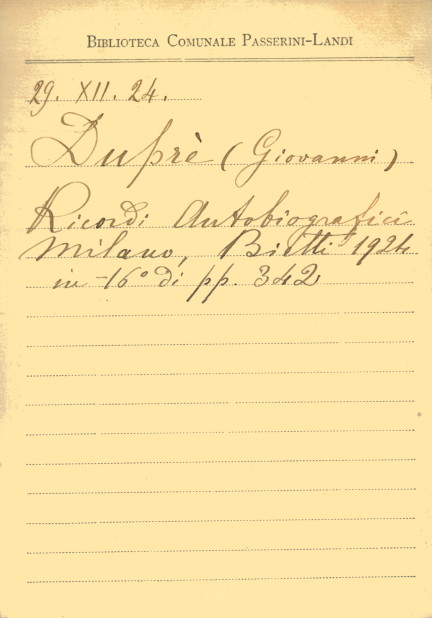 BIBLIOTECA COMUNALE PASSERINI-LANDI
29. XII. 24.
Duprè (Giovanni)
Ricordi Autobiografici
Milano, Bietti 1924
in-16° di pp. 342